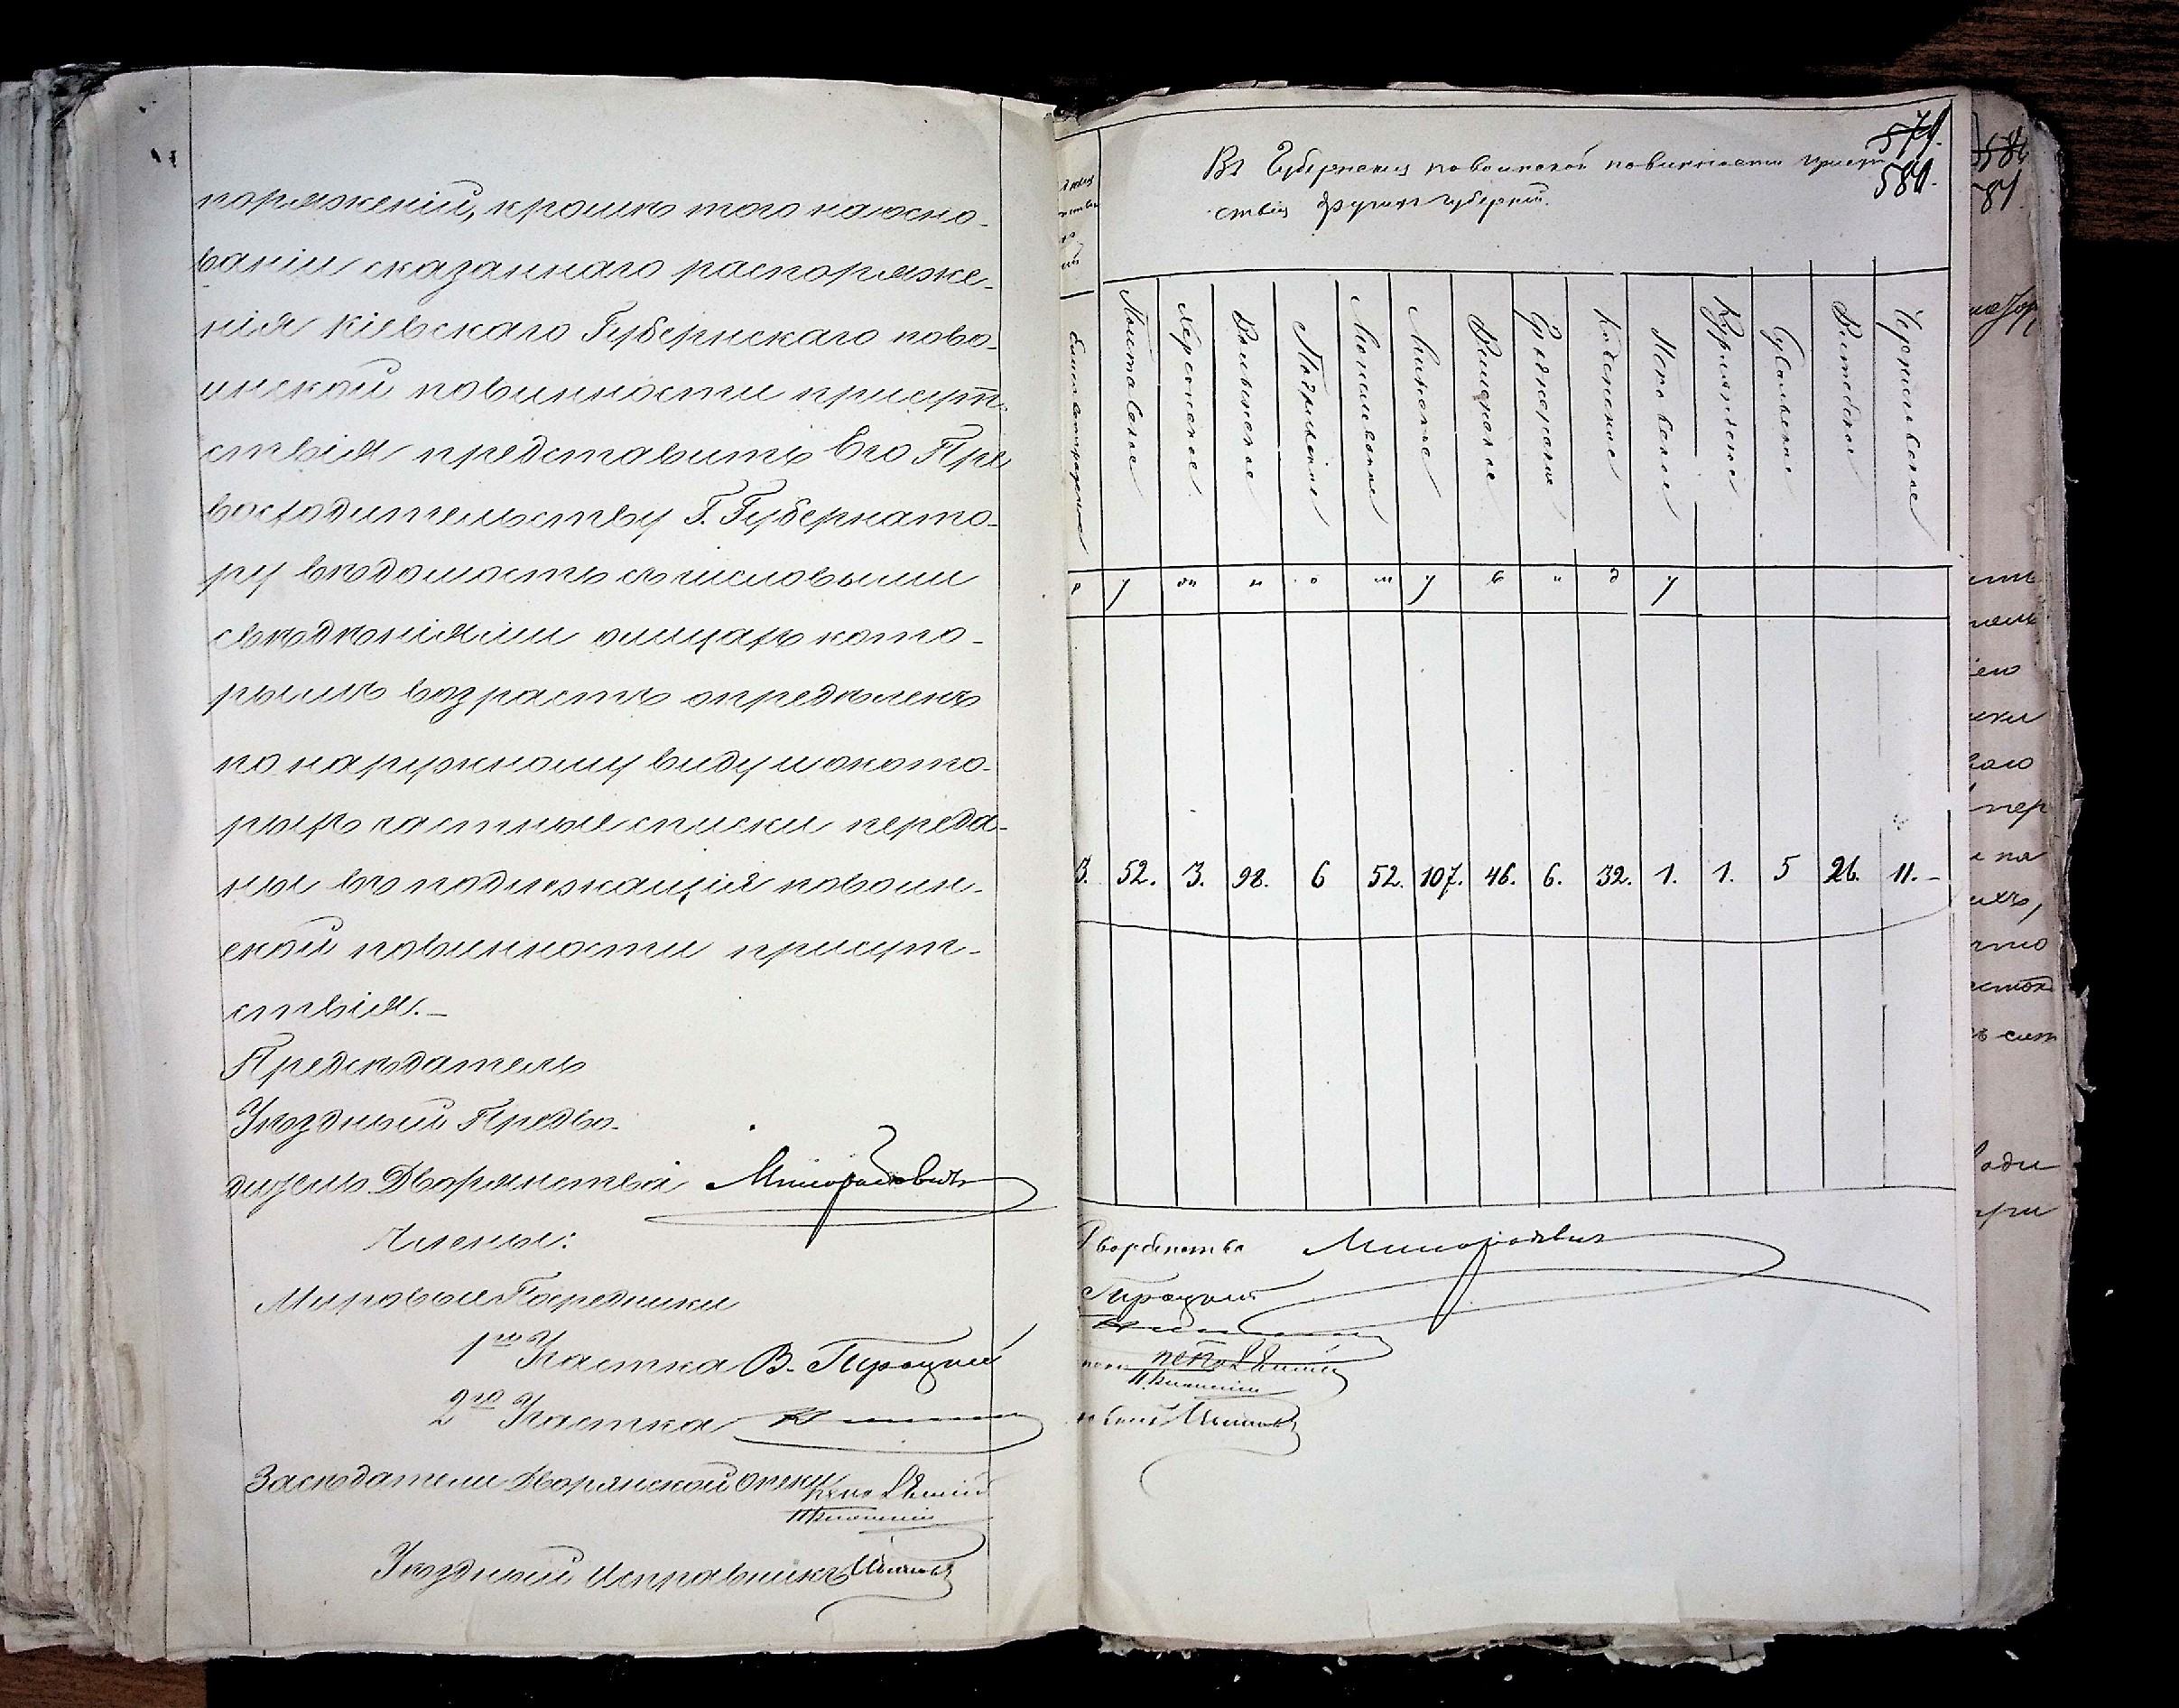 поряженій, кромѣ того на осно-
ваніи сказаннаго распоряже-
нія Кіевскаго Губернскаго пово-
инской повинности присут-
ствія представить Его Пре
восходительству Г. Губернато-
ру вѣдомость съ числовыми
свѣдѣніями о лицахъ кото-
рымъ возрастъ опредѣленъ
по наружному виду и о кото-
рыхъ частные списки переда-
ны въ подлежащія повоин-
ской повинности присут-
ствія.-
Предсѣдатель
Уѣздный Предво-
дитель Дворянства Милорадовичъ
Члены:
Мировые Посредники
1го Участка В. Троцкий
2го Участка
Засѣдатели Дворянской Опеки
Уѣздный Исправникъ
579.
580.
Въ Губернскія по воинской повинности присут
ствія другихъ Губерній.
Полтавское
Херсонское
Волынское
Подольское
Могилевское
Минское
Виленское
Гродненское
Ковенское
Московское
Курляндское
Сувалкское
Витебское
Черниговское
3. 52. 3. 98. 6 52. 107. 46. 6. 32. 1. 1. 5 26. 11.-
Дворянства Милорадовичъ
Троцкий